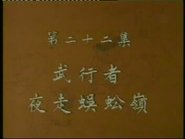 第二十二集
武行者
夜走蜈蚣嶺